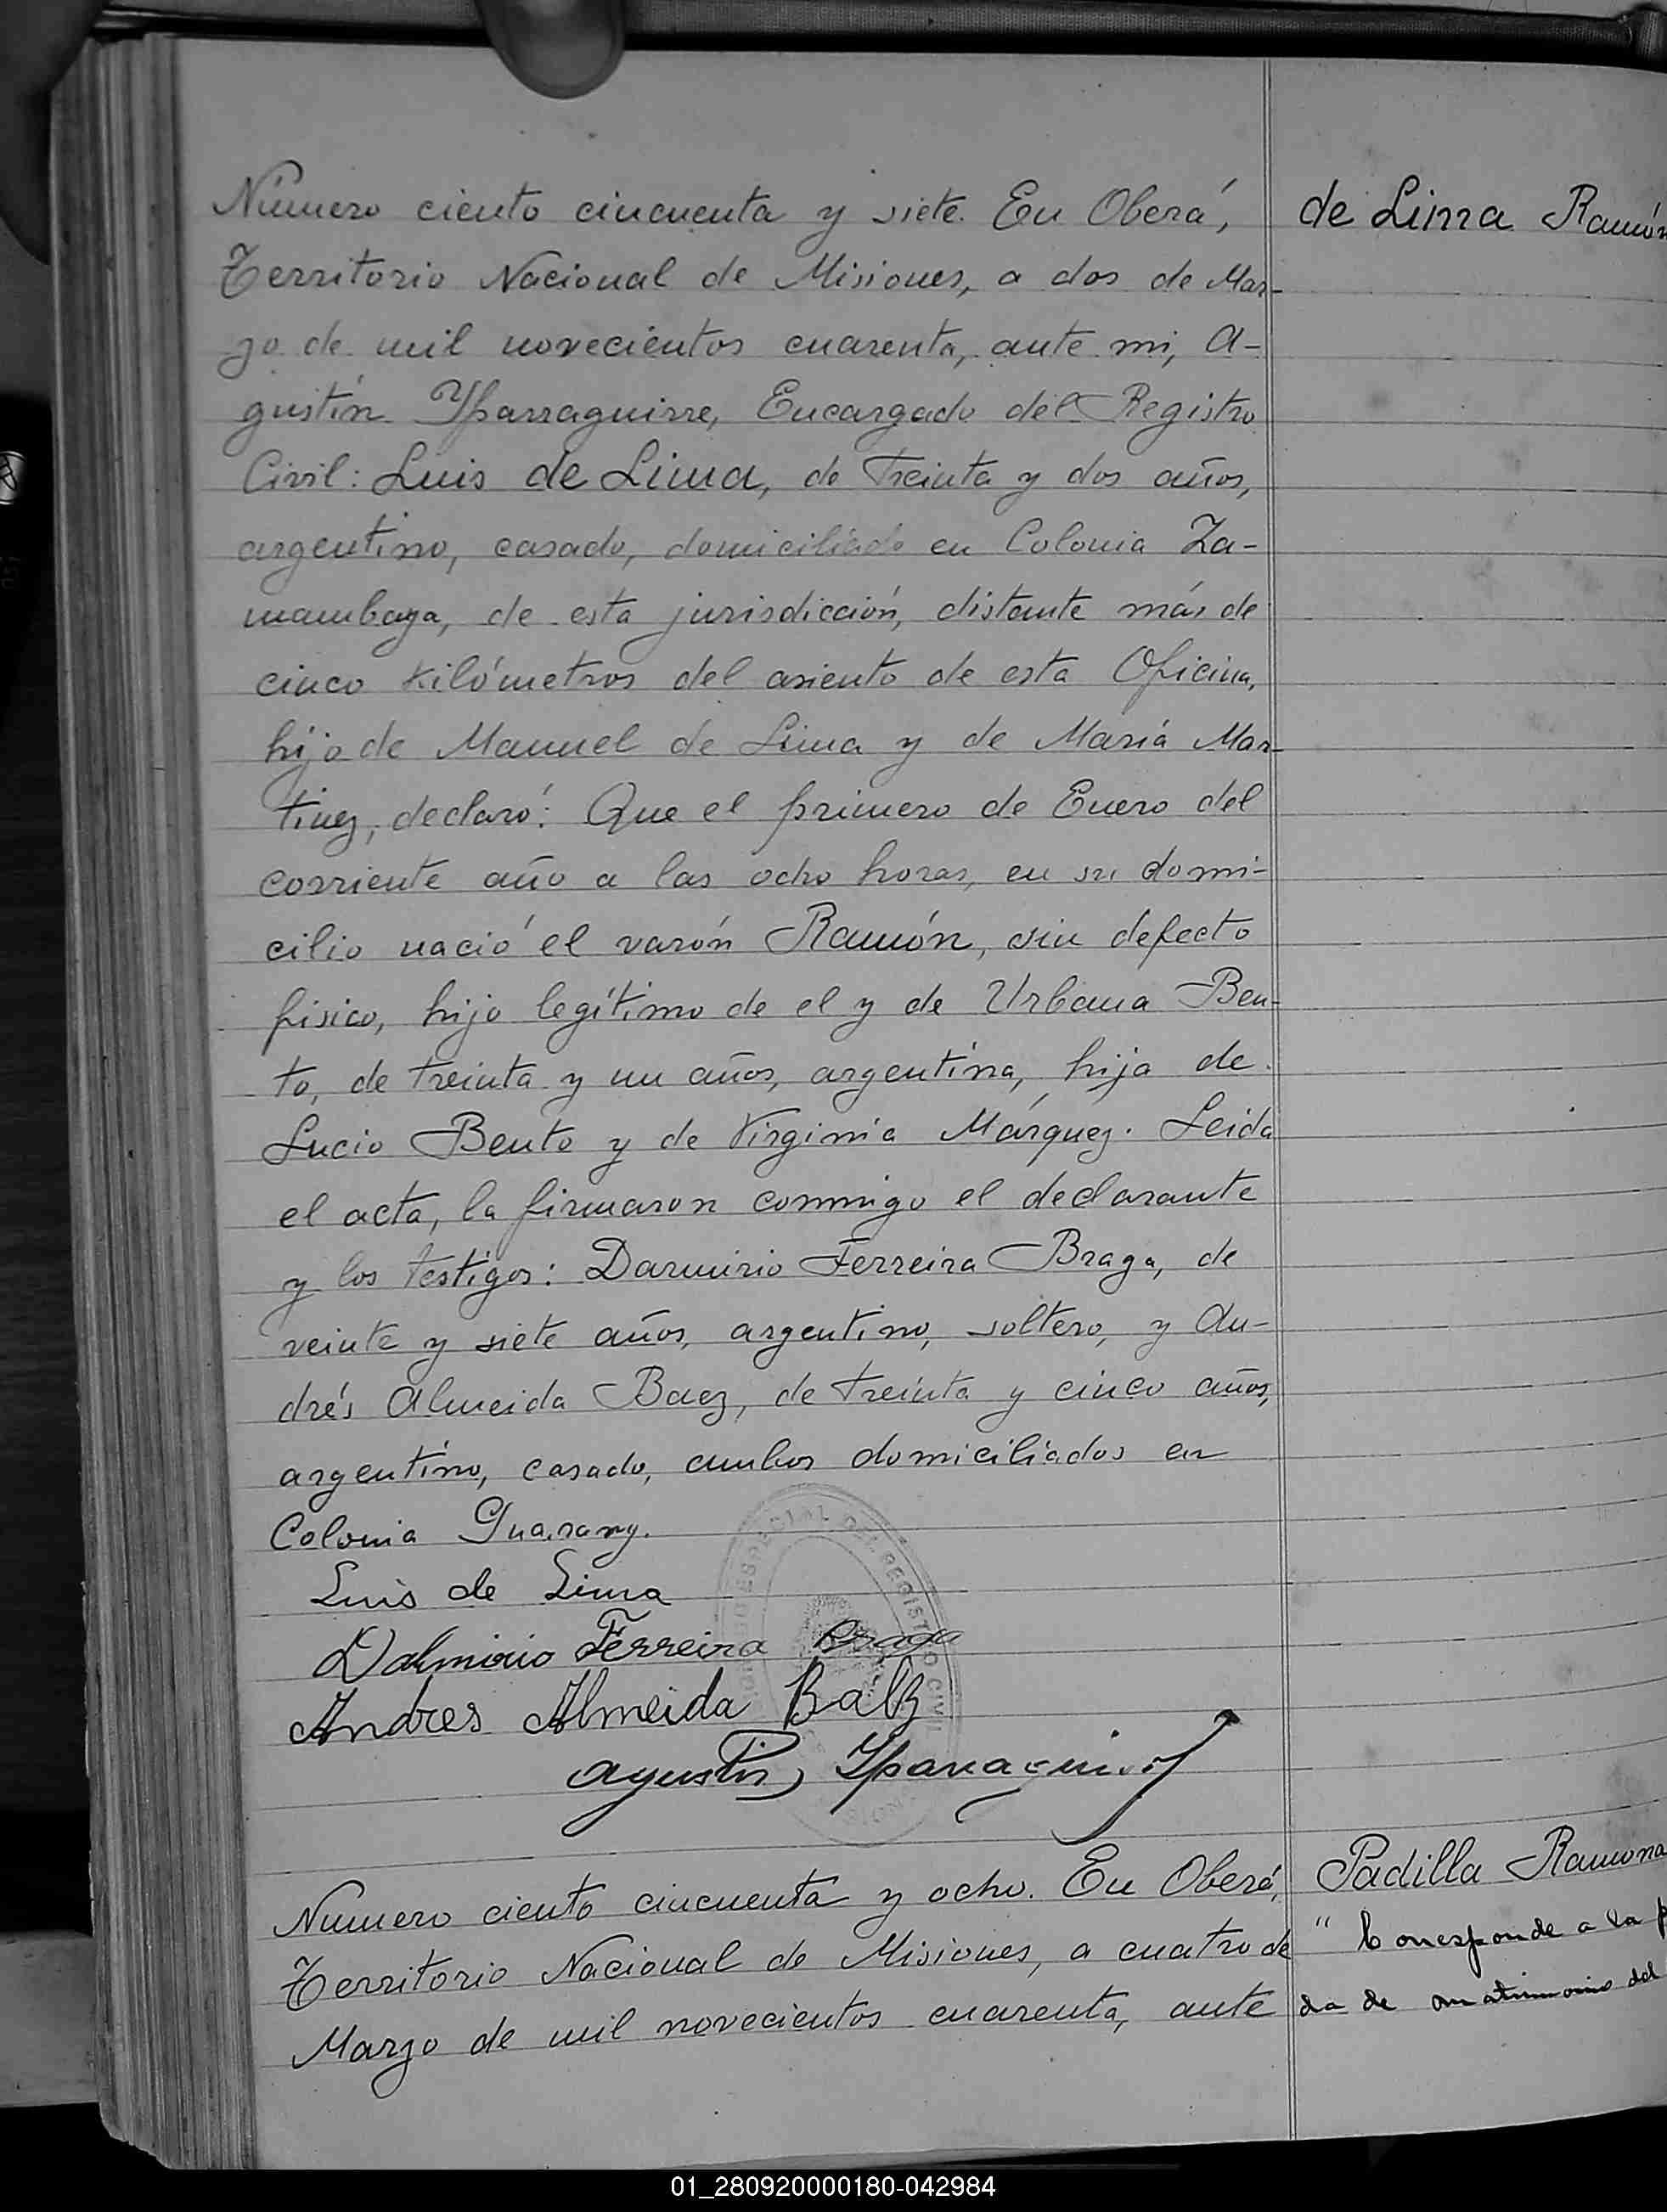 Número ciento cincuenta y siete. En Oberá,
de Lima Ramón
Territorio Nacional de Misiones, a dos de Mar-
zo de mil novecientos cuarenta, ante mi, A-
gustín Yparraguirre, Encargado del Registro
Civil: Luis de Lima, de treinta y dos años,
argentino, casado, domiciliado en Colonia Za-
mambaya, de esta jurisdicción, distante más de
cinco kilómetros del asiento de esta Oficina,
hijo de Manuel de Lima y de María Mar-
tinez, declaró: Que el primero de Enero del
corriente año a las ocho horas, en su domi-
cilio nació el varón Ramón, sin defecto
fisico, hijo legítimo de el y de Urbana Ben-
to, de treinta y un años, argentina, hija de
Lucio Bento y de Virginia Márquez. Leida
el acta, la firmaron conmigo el declarante
y los testigos: Darmirio Ferreira Braga, de
veinte y siete años, argentino, soltero, y An-
drés Almeida Baez, de treinta y cinco años,
argentino, casado, ambos domiciliados en
Colonia Guarany.
Luis de Lima
Dalmirio Ferreira Braga
Andres Almeida
Agustin Yparraguirre
DEL REGISTRO CIVIL
Numero ciento cincuenta y ocho. En Oberá,
Padilla Ramona
Territorio Nacional de Misiones, a cuatro de
" Corresponde a la p
Marzo de mil novecientos cuarenta, ante
da de matrimonio del
01_280920000180-042984